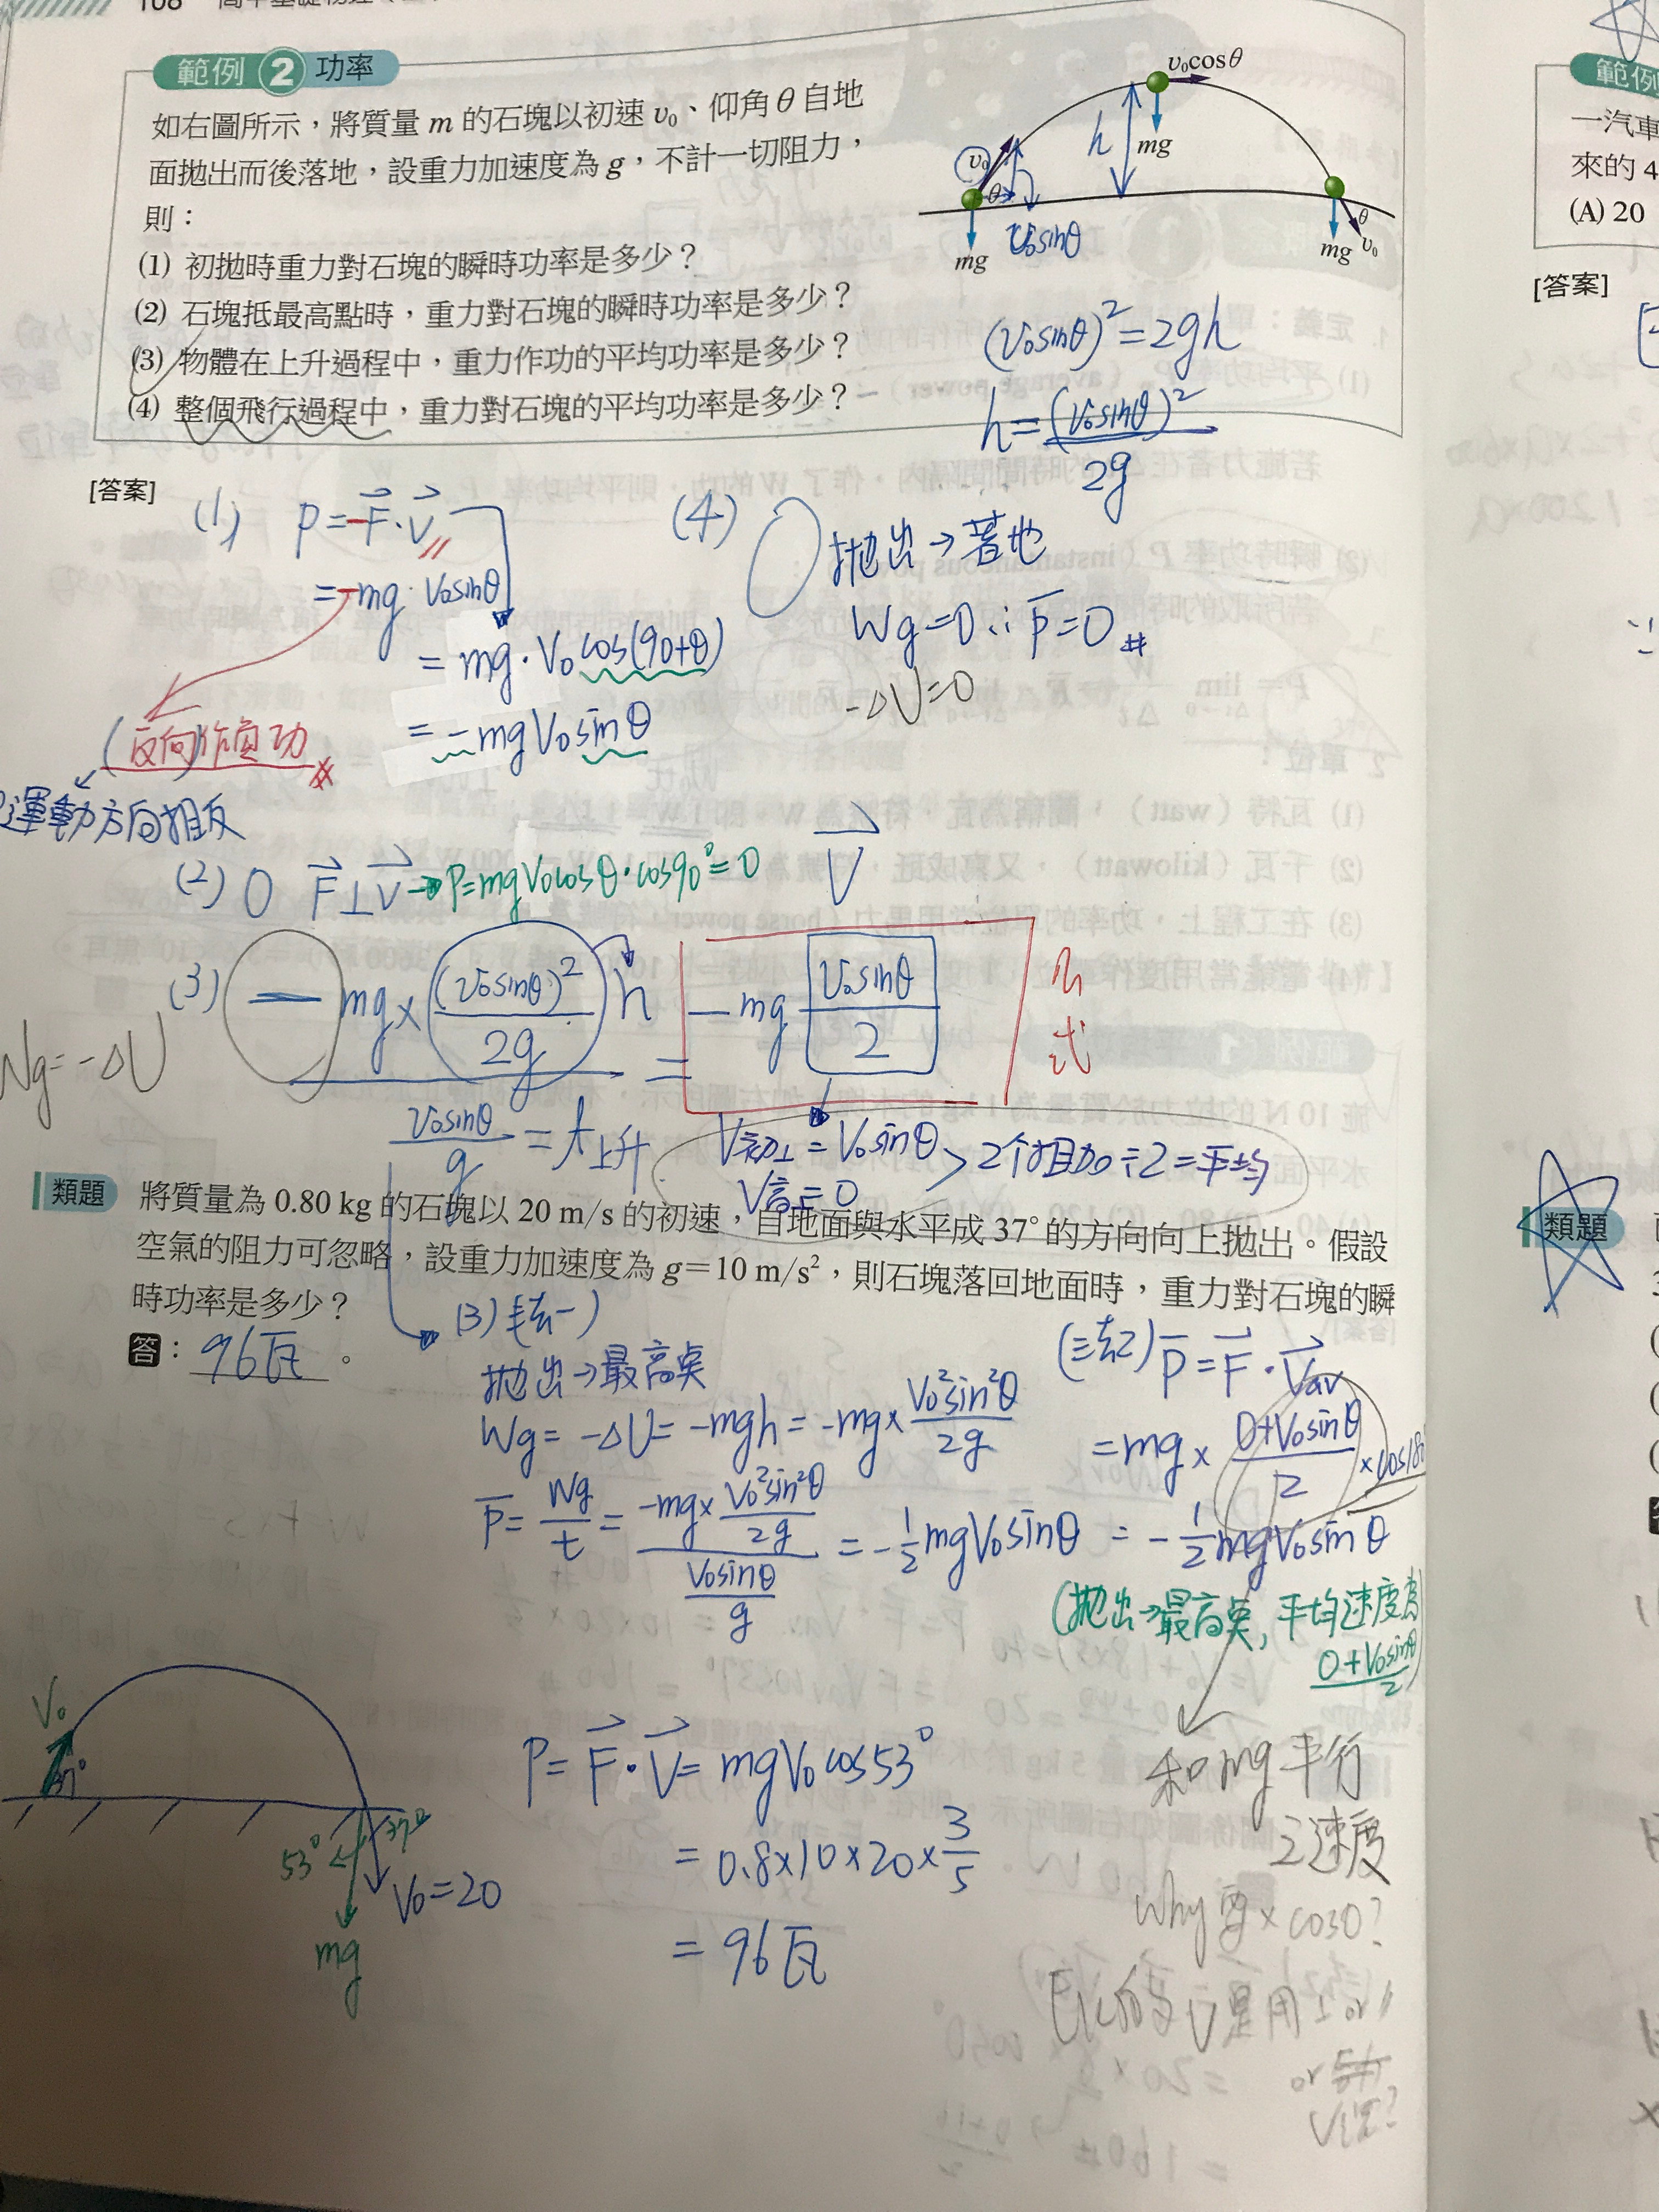 範例 2 功率
如右圖所示，將質量 m 的石塊以初速 v₀、仰角 θ 自地
面拋出而後落地，設重力加速度為 g，不計一切阻力，
則：
(1) 初拋時重力對石塊的瞬時功率是多少？
(2) 石塊抵最高點時，重力對石塊的瞬時功率是多少？
(3) 物體在上升過程中，重力作功的平均功率是多少？
(4) 整個飛行過程中，重力對石塊的平均功率是多少？
v₀cosθ
h
mg
v₀
θ
mg
v₀sinθ
θ
v₀
mg
(v₀sinθ)²=2gh
h=(v₀sinθ)²/2g
[答案]
(1) P=-F·V
=-mg·V₀sinθ
=mg·V₀cos(90+θ)
=-mgV₀sinθ
(反向)作負功
運動方向相反
(4) 拋出→著地
Wg=0∴P=0#
-ΔU=0
(2) 0 F⊥V→P=mgV₀cosθ·cos90°=0
V
(3) -mg×(v₀sinθ)²/2g h = -mg v₀sinθ/2
v₀sinθ/g=t上升
Wg=-ΔU
V初⊥=V₀sinθ
V高⊥=0
>2個相加÷2=平均
類題 將質量為 0.80 kg 的石塊以 20 m/s 的初速，自地面與水平成 37°的方向向上拋出。假設
空氣的阻力可忽略，設重力加速度為 g＝10 m/s²，則石塊落回地面時，重力對石塊的瞬
時功率是多少？
答：96瓦。
(3)(法一)
拋出→最高點
Wg=-ΔU=-mgh=-mg×V₀²sin²θ/2g
P=Wg/t=(-mg×V₀²sin²θ/2g)/(V₀sinθ/g)=-1/2mgV₀sinθ
(法2) P=F·Vav
=mg×(0+V₀sinθ)/2×cos180
=-1/2mgV₀sinθ
(拋出→最高點, 平均速度為
(0+V₀sinθ)/2)
和mg平行
之速度
Why 要×cosθ?
V₀
37°
53°
37°
V₀=20
mg
P=F·V=mgV₀cos53°
=0.8×10×20×3/5
=96瓦
範例
一汽車
來的 4
(A) 20
[答案]
類題